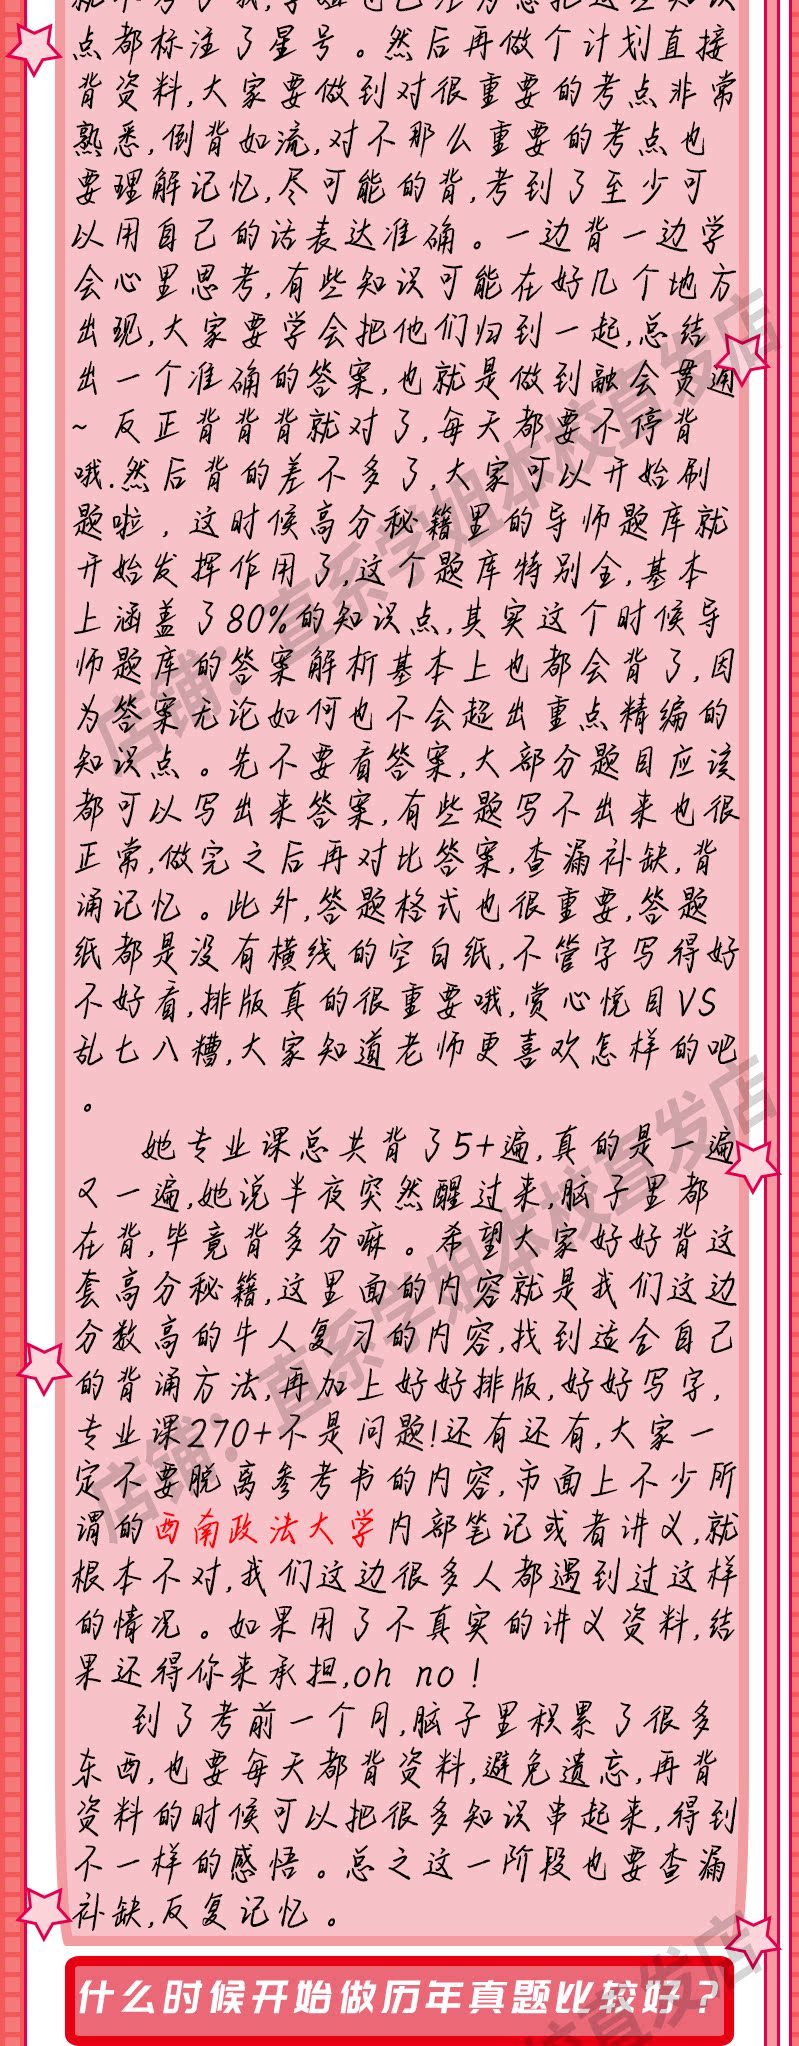 点都标注了星号。然后再做个计划直接
背资料,大家要做到对很重要的考点非常
熟悉,倒背如流,对不那么重要的考点也
要理解记忆,尽可能的背,考到了至少可
以用自己的话表达准确。一边背一边学
会心里思考,有些知识可能在好几个地方
出现,大家要学会把他们归到一起,总结
出一个准确的答案,也就是做到融会贯通
~反正背背背就对了,每天都要不停背
哦.然后背的差不多了,大家可以开始刷
题啦，这时候高分秘籍里的导师题库就
开始发挥作用了,这个题库特别全,基本
上涵盖了80%的知识点,其实这个时候导
师题库的答案解析基本上也都会背了,因
为答案无论如何也不会超出重点精编的
知识点。先不要看答案,大部分题目应该
都可以写出来答案,有些题写不出来也很
正常,做完之后再对比答案,查漏补缺,背
诵记忆。此外,答题格式也很重要,答题
纸都是没有横线的空白纸,不管字写得好
不好看,排版真的很重要哦,赏心悦目VS
乱七八糟,大家知道老师更喜欢怎样的吧
。
她专业课总共背了5+遍,真的是一遍
又一遍,她说半夜突然醒过来,脑子里都
在背,毕竟背多分嘛。希望大家好好背这
套高分秘籍,这里面的内容就是我们这边
分数高的牛人复习的内容,找到适合自己
的背诵方法,再加上好好排版,好好写字,
专业课270+不是问题!还有还有,大家一
定不要脱离参考书的内容,市面上不少所
谓的西南政法大学内部笔记或者讲义,就
根本不对,我们这边很多人都遇到过这样
的情况。如果用了不真实的讲义资料,结
果还得你来承担,oh no!
到了考前一个月,脑子里积累了很多
东西,也要每天都背资料,避免遗忘,再背
资料的时候可以把很多知识串起来,得到
不一样的感悟。总之这一阶段也要查漏
补缺,反复记忆。
什么时候开始做历年真题比较好？
店铺：直系学姐本校直发店
店铺：直系学姐本校直发店
本校直发店